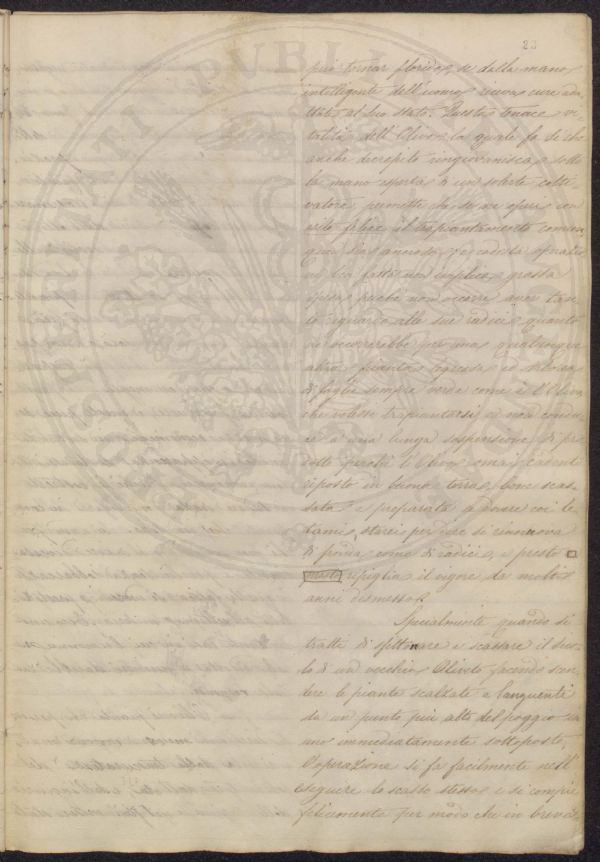 23
può tornar florido, se dalla mano
intelligente dell'uomo riceva cure adat
tate al suo stato. Questa tenace vi
talità dell'Olivo, la quale fa sì che
anche decrepito ringiovanisca sotto
la mano esperta di un solerte colti
vatore, permette che su ne operi con
esito felice il trapiantamento comun
que sia annoso, e codesta operazio
ne ben fatta non implica grossa
spesa poichè non occorre aver tan
to riguardo alle sue radici quanto
ne occorrerebbe per una qualunque
altra pianta legnosa ed arborea
di foglia sempre verde come è l'Olivo
che volesse trapiantarsi, e non condu
ce a una lunga sospensione di pro
dotto perchè l'Olivo omai cadente
riposto in buona terra, bene scas
sata e preparata a dovere coi le
tami, starei per dire si rinnuova
di fronda come di radici, e presto
presto ripiglia il vigore da molti
anni dismesso.
Specialmente quando si
tratti di spittonare e scassare il suo
lo di un vecchio Oliveto facendo scen
dere le piante scalzate e languenti
da un punto più alto del poggio ad
uno immediatamente sottoposto,
l'operazione si fa facilmente nell'
eseguire lo scasso stesso e si compie
felicemente per modo che in breve
PVBLI